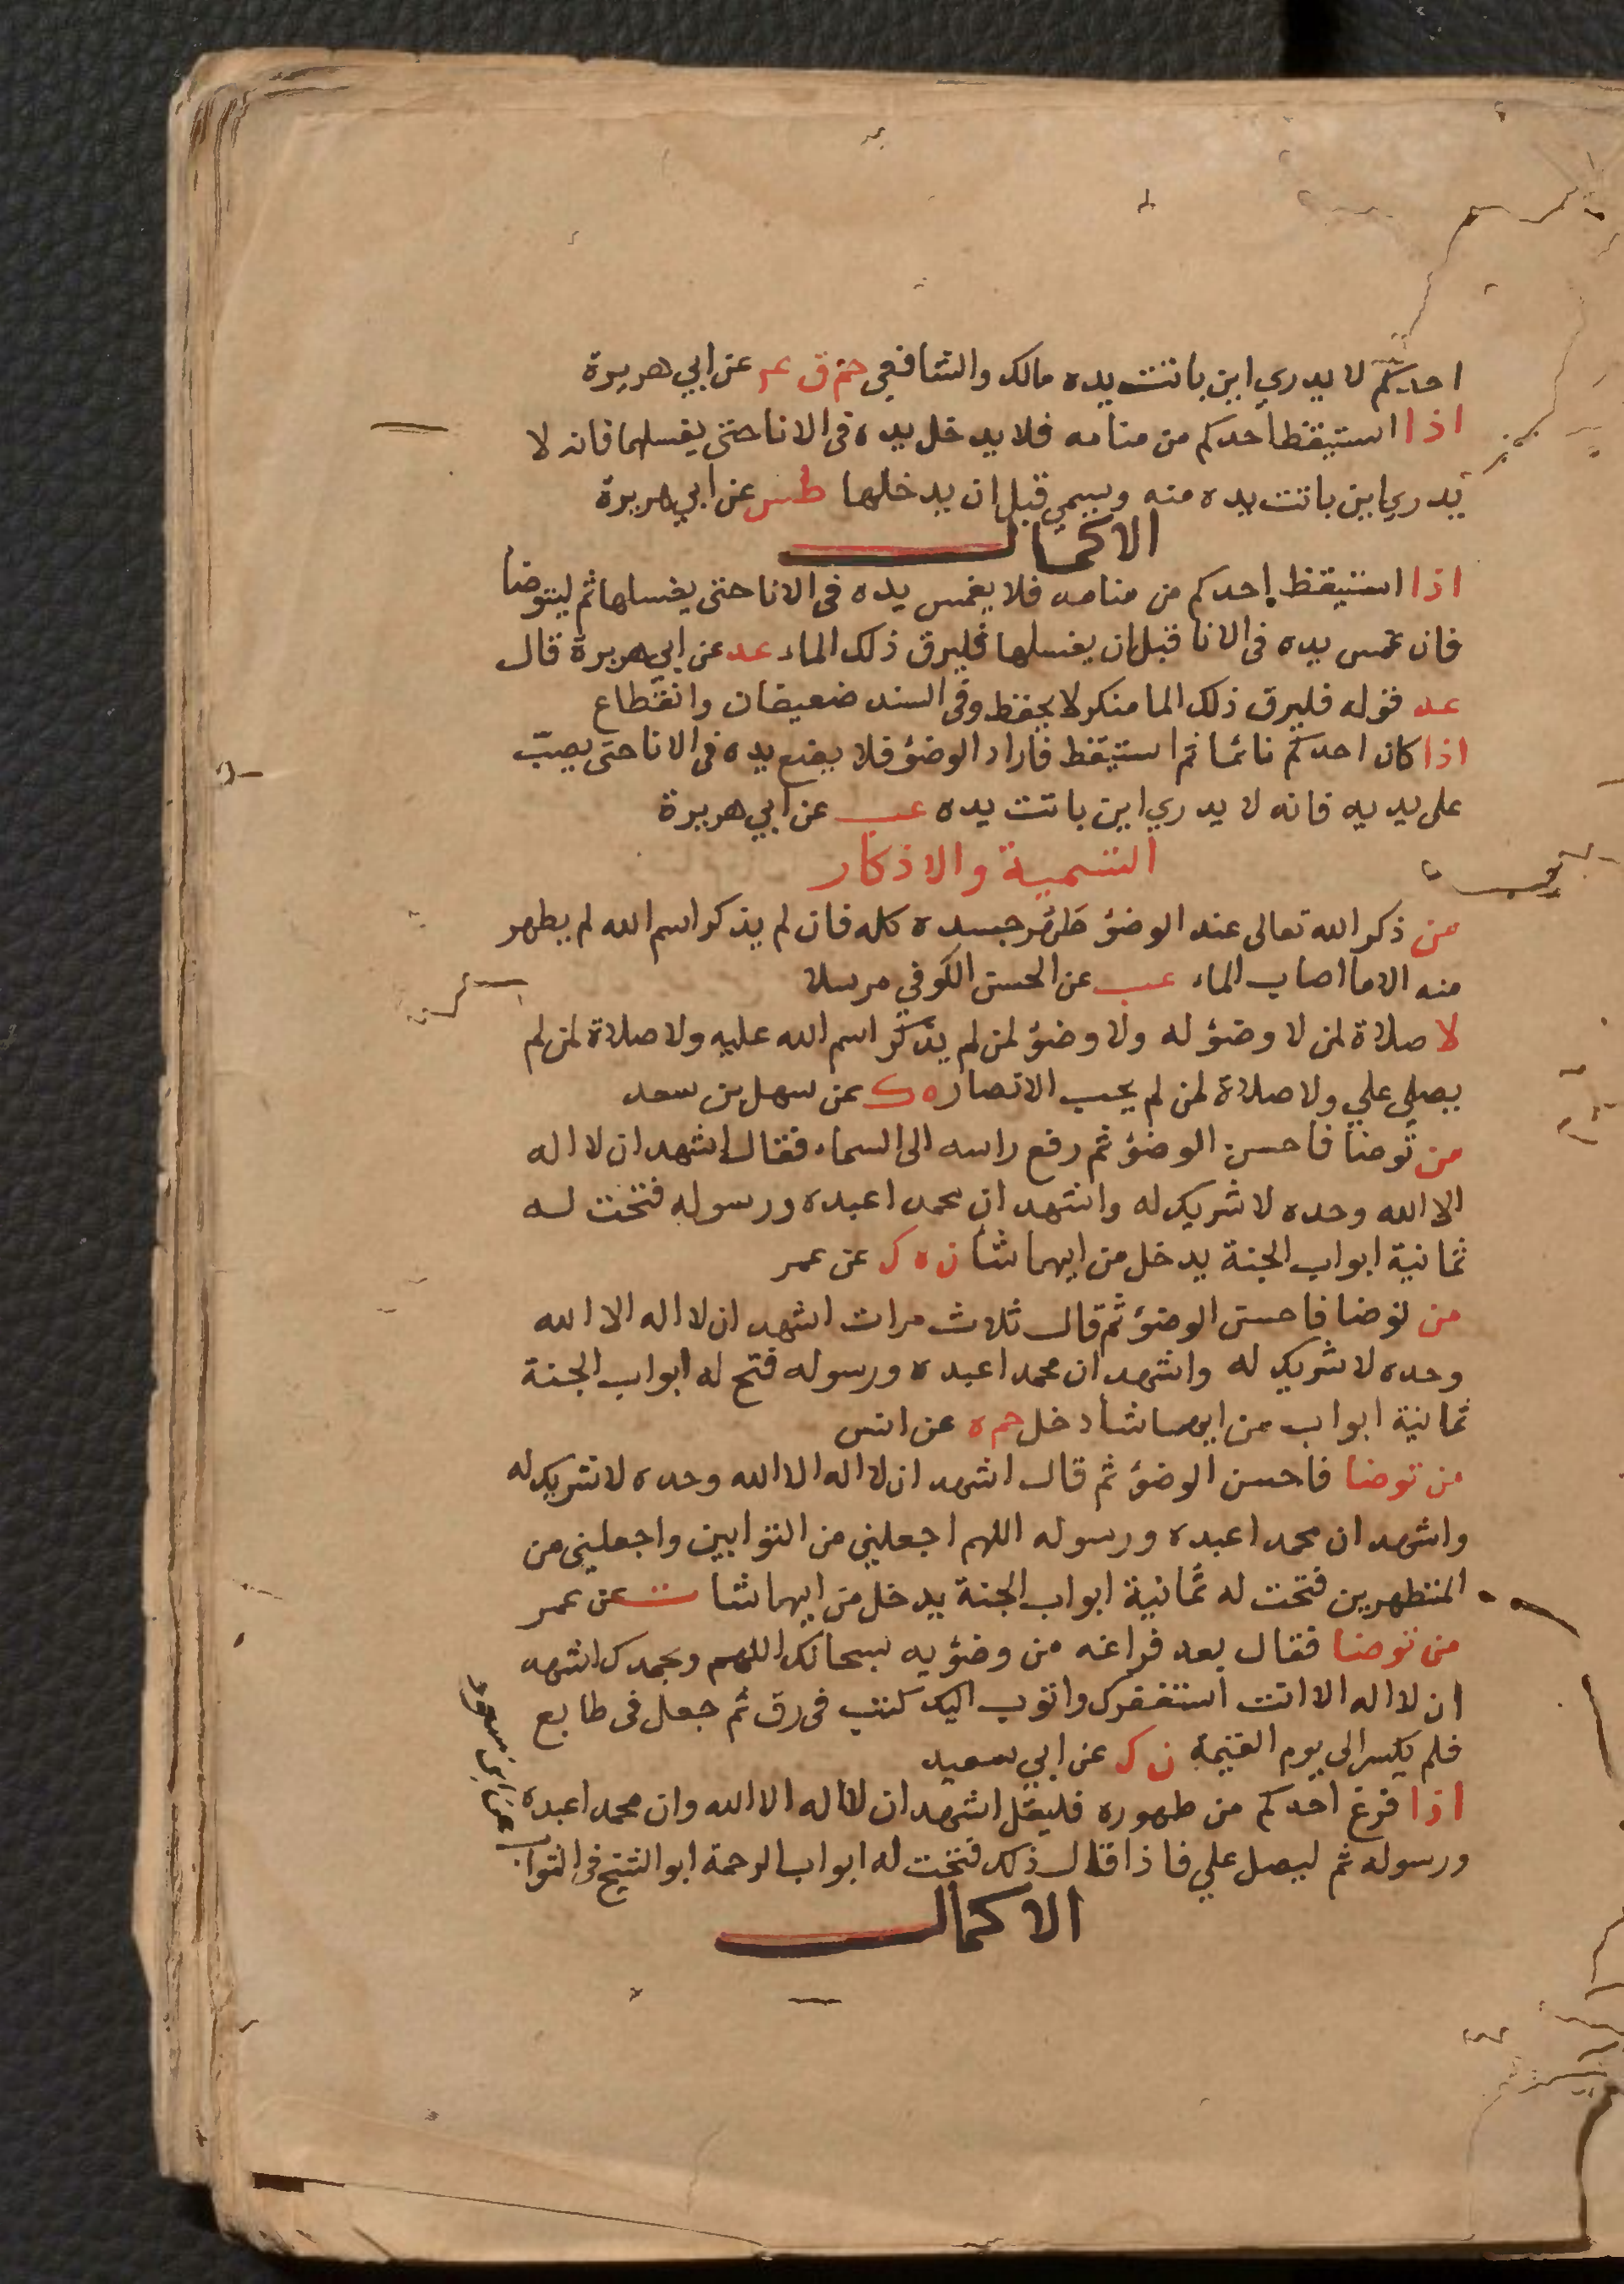 احدكم لا يدري اين باتت يده مالك والشافعي حم ق عم عن ابي هريرة
اذا استيقظ احدكم من منامه فلا يدخل يده فى الانا حتى يغسلها فانه لا
يدري اين باتت يده منه ويسمي قبل ان يدخلها طس عن ابي هريرة
الاكمال
اذا استيقظ احدكم من منامه فلا يغمس يده فى الانا حتى يغسلها ثم ليتوضا
فان غمس يده فى الانا قبل ان يغسلها فليرق ذلك الماء عد عن ابي هريرة قال
عد قوله فليرق ذلك الما منكر لا يحفظ وفى السند ضعيفان وانقطاع
اذا كان احدكم نائما ثم استيقظ فاراد الوضؤ فلا يضع يده فى الانا حتى يصبّ
على يديه فانه لا يدري اين باتت يده عب عن ابي هريرة
التسمية والاذكار
من ذكر الله تعالى عند الوضؤ طهّر جسده كله فان لم يذكر اسم الله لم يطهر
منه الا ما اصاب الماء عب عن الحسن الكوفي مرسلا
لا صلاة لمن لا وضؤ له ولا وضؤ لمن لم يذكر اسم الله عليه ولا صلاة لمن لم
يصلي علي ولا صلاة لمن لم يحب الانصار ه ك عن سهل بن سعد
من توضا فاحسن الوضؤ ثم رفع راسه الى السماء فقال اشهد ان لا اله
الا الله وحده لا شريك له واشهد ان محمدا عبده ورسوله فتحت له
ثمانية ابواب الجنة يدخل من ايهما شا ن ه ك عن عمر
من توضا فاحسن الوضؤ ثم قال ثلاث مرات اشهد ان لا اله الا الله
وحده لا شريك له واشهد ان محمدا عبده ورسوله فتح له ابواب الجنة
ثمانية ابواب من ايهما شا دخل حم ه عن انس
من توضا فاحسن الوضؤ ثم قال اشهد ان لا اله الا الله وحده لا شريك له
واشهد ان محمدا عبده ورسوله اللهم اجعلني من التوابين واجعلني من
المتطهرين فتحت له ثمانية ابواب الجنة يدخل من ايهما شا ت عن عمر
من توضا فقال بعد فراغه من وضؤيه سبحانك اللهم وبحمدك اشهد
ان لا اله الا انت استغفرك واتوب اليك كتب فى رق ثم جعل فى طابع
فلم يكسر الى يوم القيمة ن ك عن ابي سعيد
اذا فرغ احدكم من طهوره فليقل اشهد ان لا اله الا الله وان محمدا عبده
ورسوله ثم ليصل علي فاذا قال ذلك فتحت له ابواب الرحمة ابو الشيخ فى الثواب
عن ابن مسعود
الاكمال